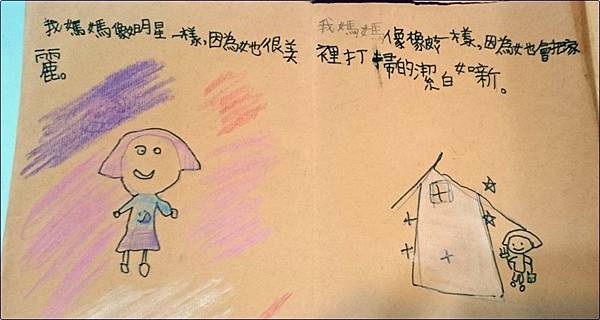 我媽媽像明星一樣,因為她很美
麗。
我媽媽像橡皮一樣,因為她會把家
裡打掃的潔白如新。